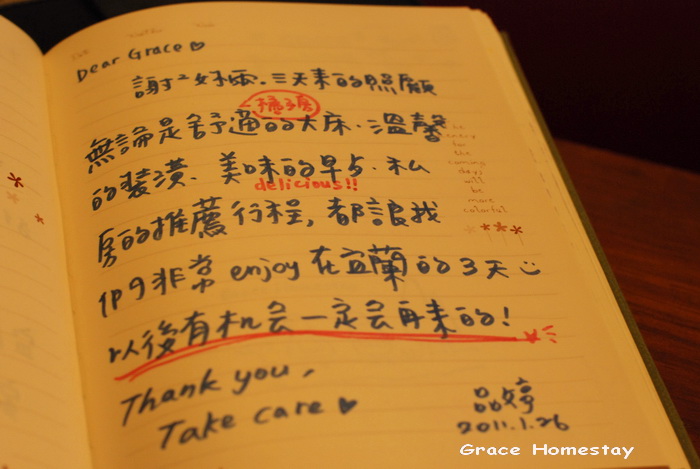 Dear Grace♥
謝²妤雲.三天來的照顧
無論是舒適的大床.溫馨
的裝潢.美味的早点.私
delicious!!
房的推薦行程,都讓我
們9非常enjoy在宜蘭的3天☺
以後有机会一定会再來的!
Thank you,
Take care ♥
品婷
2011.1.26
be
every
for
the
coming
days
will
be
more
colorful
Grace Homestay